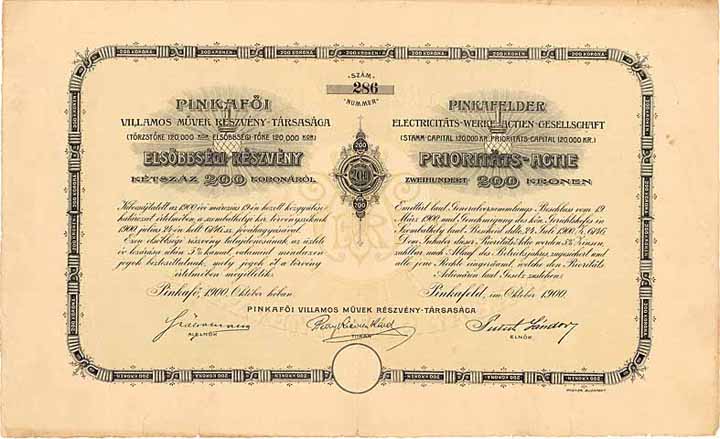 SZÁM
286
NUMMER
PINKAFŐI
VILLAMOS MŰVEK RÉSZVÉNY-TÁRSASÁGA
(TÖRZSTŐKE 120,000 KOR. ELSŐBBSÉGI-TŐKE 120,000 KOR.)
ELSŐBBSÉGI-RÉSZVÉNY
KÉTSZÁZ 200 KORONÁRÓL
Kibocsájtatott az 1900 évi március 19 én hozott közgyűlési
határozat értelmében a szombathelyi kir. törvényszéknek
1900. július 24 én kelt 6146 sz. jóváhagyásával.
Ezen elsőbbségi részvény tulajdonosának az üzleti
év lezárása után 5% kamat, valamint mindazon
jogok biztosíttatnak, mely jogok őt a törvény
értelmében megilletik.
Pinkafő, 1900. Október hóban.
PINKAFELDER
ELECTRICITÄTS-WERKE-ACTIEN-GESELLSCHAFT
(STAMM-CAPITAL 120,000 KR. PRIORITÄTS-CAPITAL 120,000 KR.)
PRIORITÄTS-ACTIE
ZWEIHUNDERT 200 KRONEN
Emittirt laut Generalversammlungs Beschluss vom 19
März 1900 und Genehmigung des kön. Gerichtshofes in
Szombathely laut Bescheid ddto 24 Juli 1900. Z. 6146.
Dem Inhaber dieser Prioritäts Actie werden 5% Zinsen,
zahlbar nach Ablauf des Betriebsjahres, zugesichert und
alle jene Rechte eingeräumt, welche den Prioritäts
Actionären laut Gesetz zustehen.
Pinkafeld, im Oktober 1900.
200
200
200
PINKAFŐI VILLAMOS MŰVEK RÉSZVÉNY-TÁRSASÁGA
ALELNÖK
TITKÁR
ELNÖK
200 KORONA
200 KRONEN